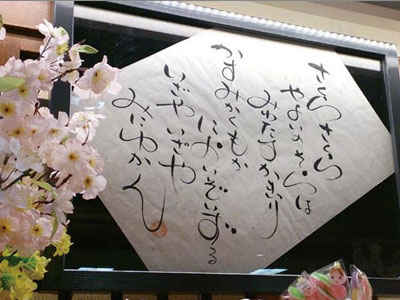 さくらさくら
やよいのそらは
みわたすかぎり
かすみかくもか
にほいぞいずる
いざやいざや
みにゆかん